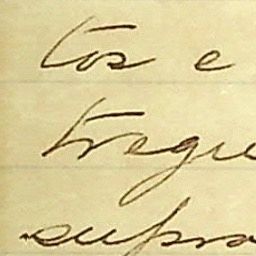 tos e
tregue
supra